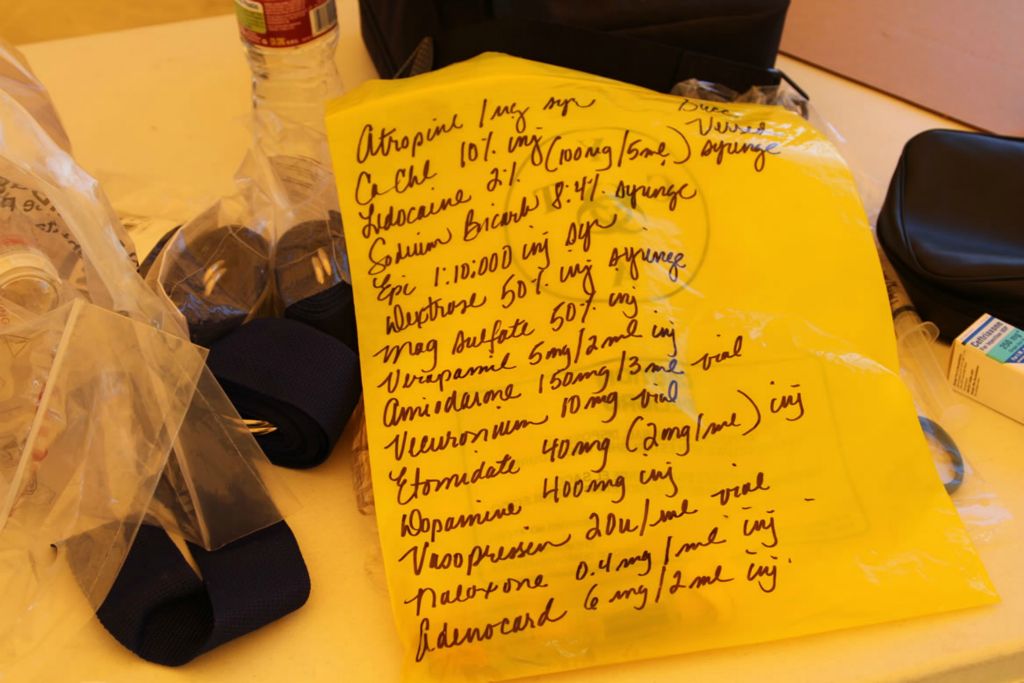 Atropine 1mg syr
Ca Chl 10% inj
Lidocaine 2% (100mg/5ml) syringe
Sodium Bicarb 8.4% syringe
Epi 1:10:000 inj syr
Dextrose 50% inj syringe
Mag Sulfate 50% inj
Verapamil 5mg/2ml inj
Amiodarone 150mg/3ml vial
Vecuronium 10mg vial
Etomidate 40mg (2mg/ml) inj
Dopamine 400mg inj
Vasopressin 20u/ml vial
Naloxone 0.4mg/ml inj
Adenocard 6mg/2ml inj.
Ceftriaxone
250 mg